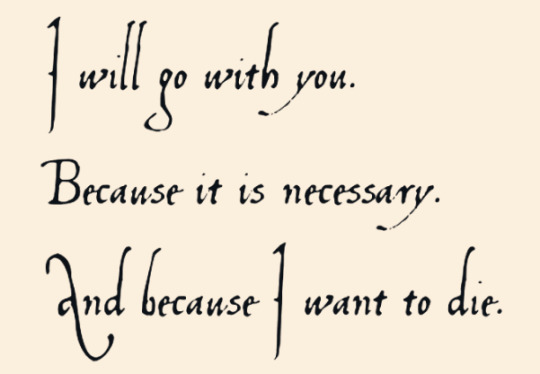 I will go with you.
Because it is necessary.
And because I want to die.